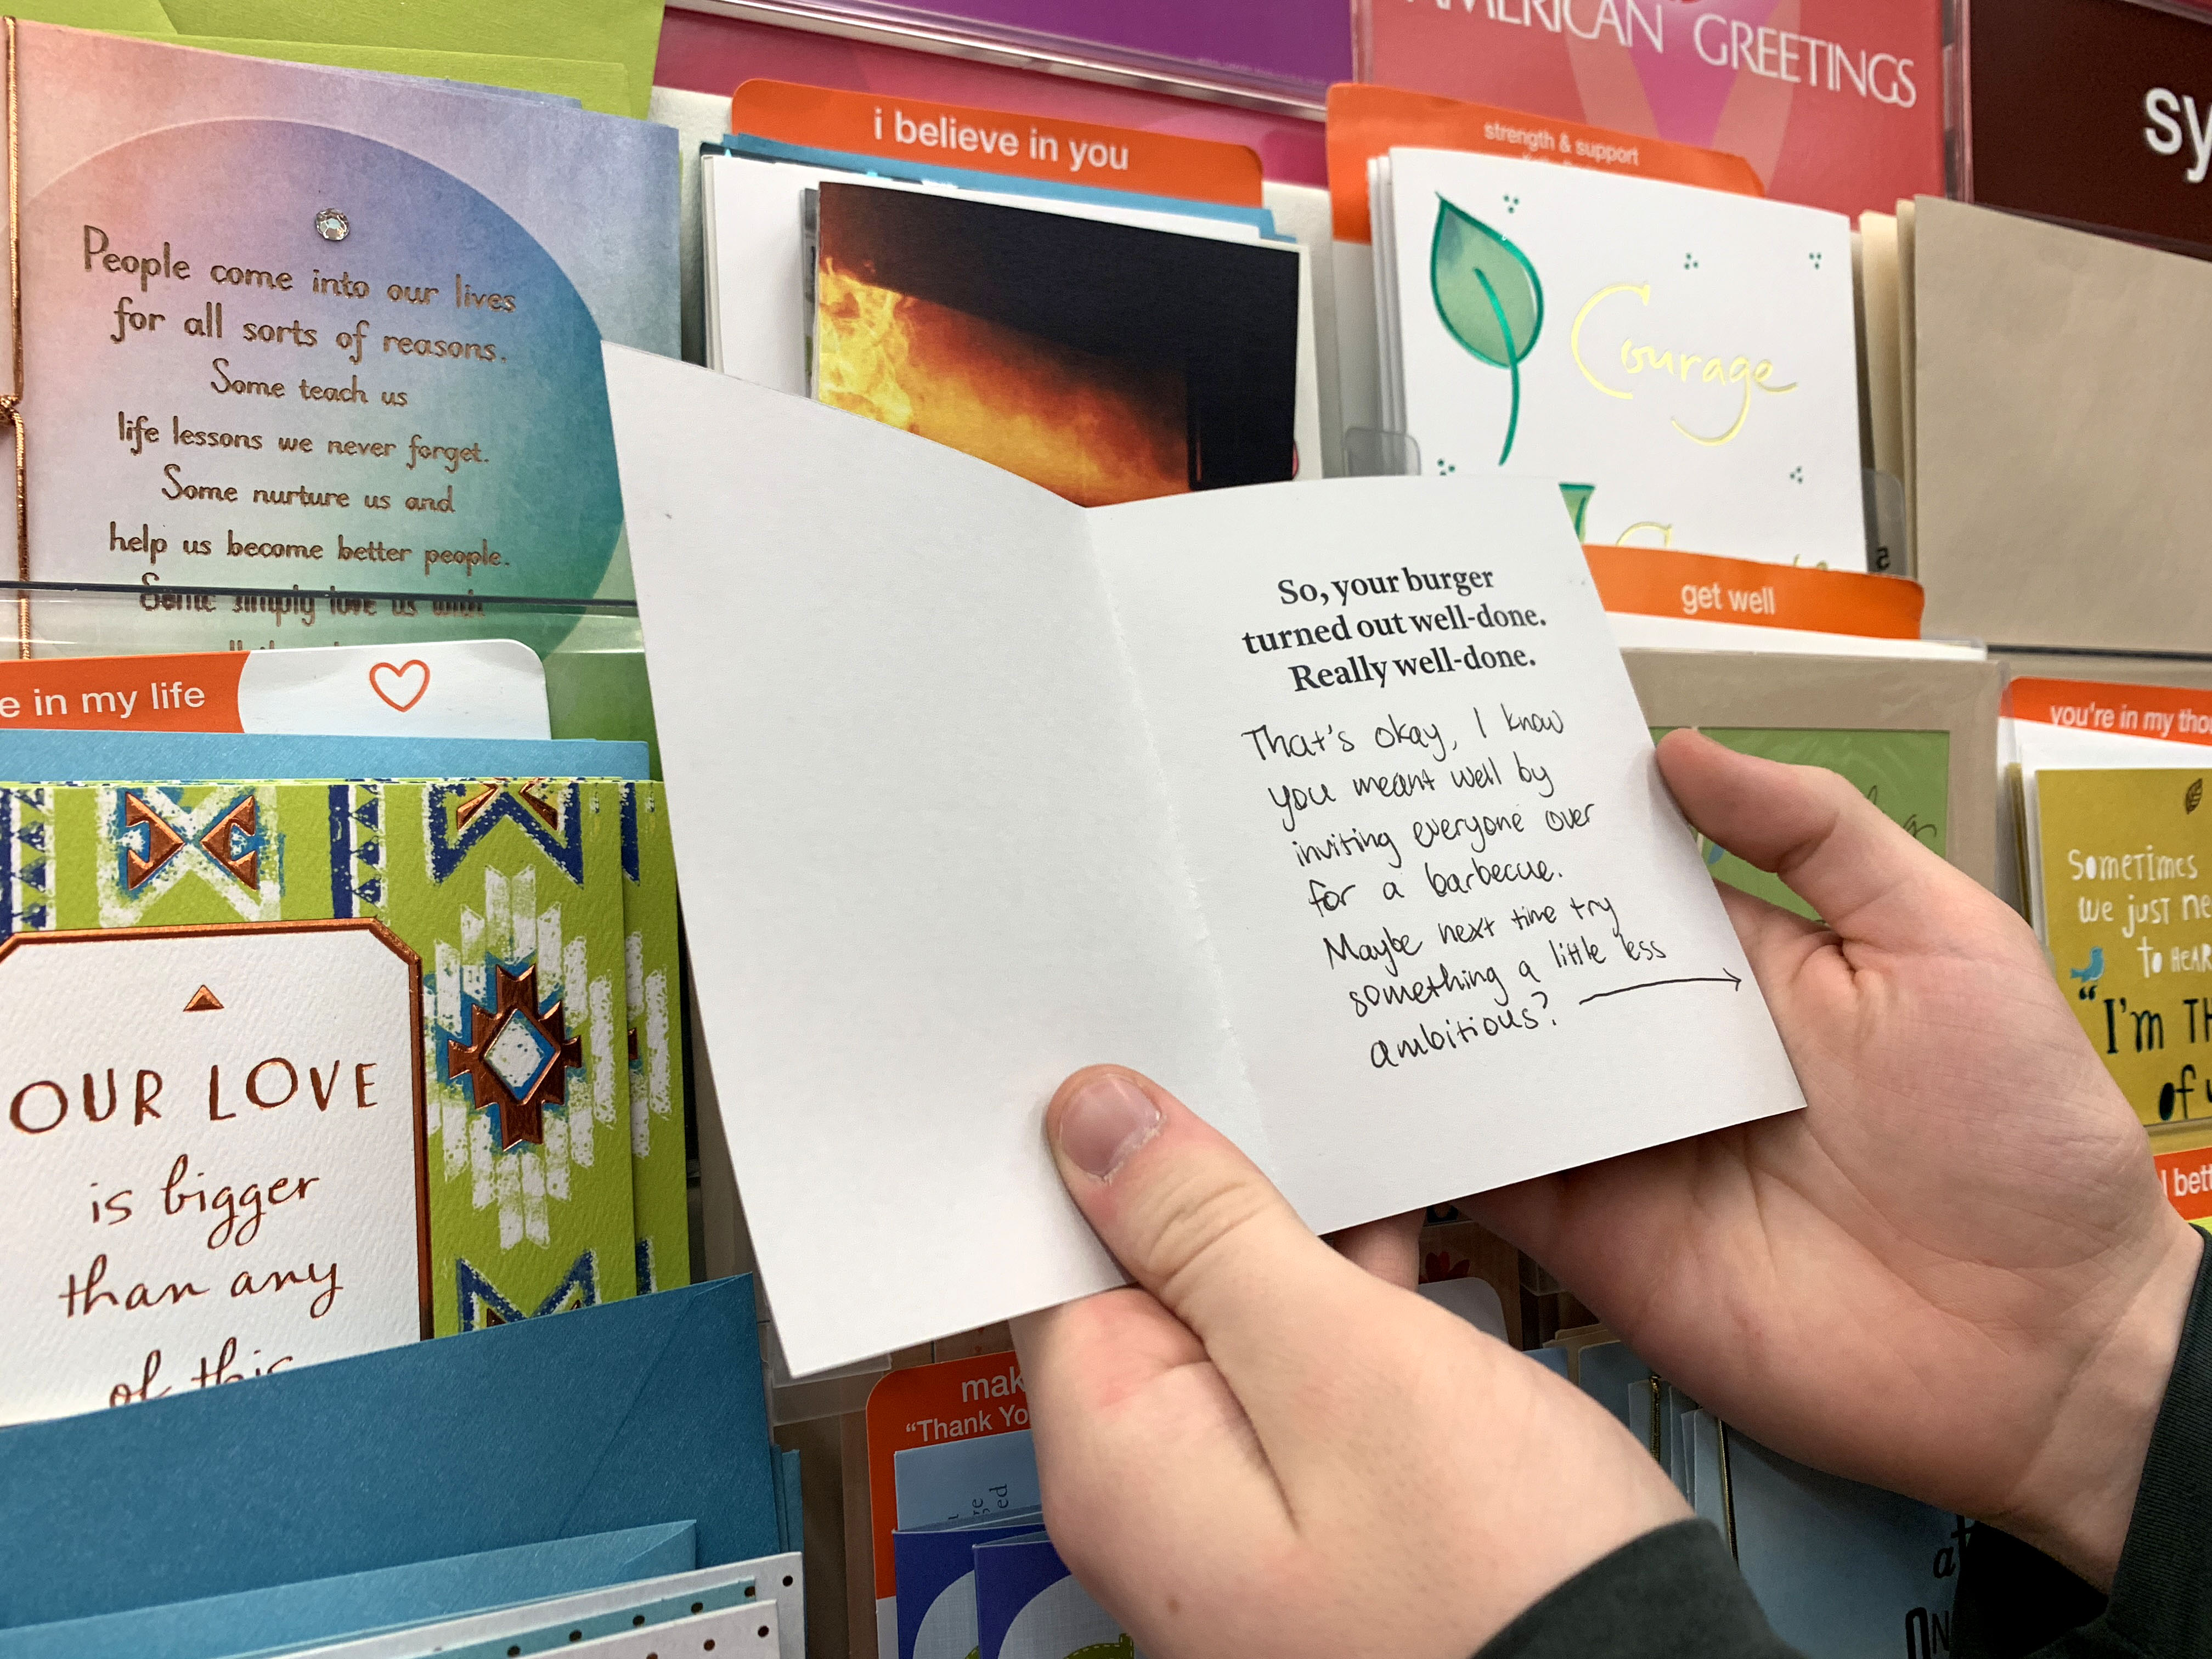 AMERICAN GREETINGS
i believe in you
strength & support
People come into our lives
for all sorts of reasons.
Some teach us
life lessons we never forget.
Some nurture us and
help us become better people.
Some simply love us with
Courage
So, your burger
turned out well-done.
Really well-done.
That's okay, I know
you meant well by
inviting everyone over
for a barbecue.
Maybe next time try
something a little less
ambitious?
get well
in my life
you're in my
Sometimes
we just
to HEAR
"I'm
of
OUR LOVE
is bigger
than any
of this
"Thank